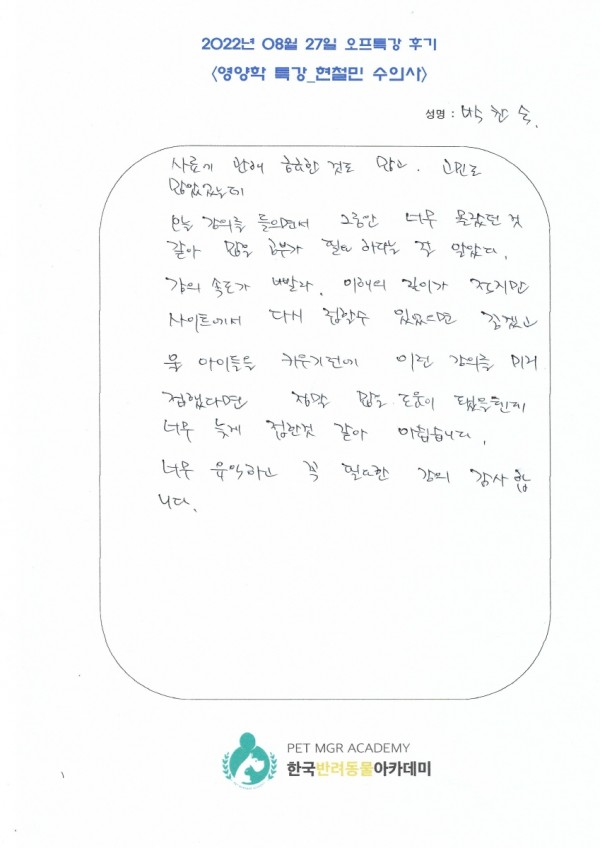 2022년 08월 27일 오프특강 후기
<영양학 특강_현철민 수의사>
성명 : 박찬숙.
사료에 관해 궁금한 것도 많고. 고민도
많았었는데
오늘 강의를 들으면서 그동안 너무 몰랐던 것
같아 많은 공부가 필요하다는 걸 알았다.
강의 속도가 빨라. 이해의 깊이가 지만
사이트에서 다시 접할수 있었으면 좋겠고
울 아이들을 키우기전에 이런 강의를 미리
접했다면 정말 많은 도움이 됐을텐데
너무 늦게 접한것 같아 아쉽습니다.
너무 유익하고 꼭 필요한 강의 감사합
니다.
PET MGR ACADEMY
한국반려동물아카데미